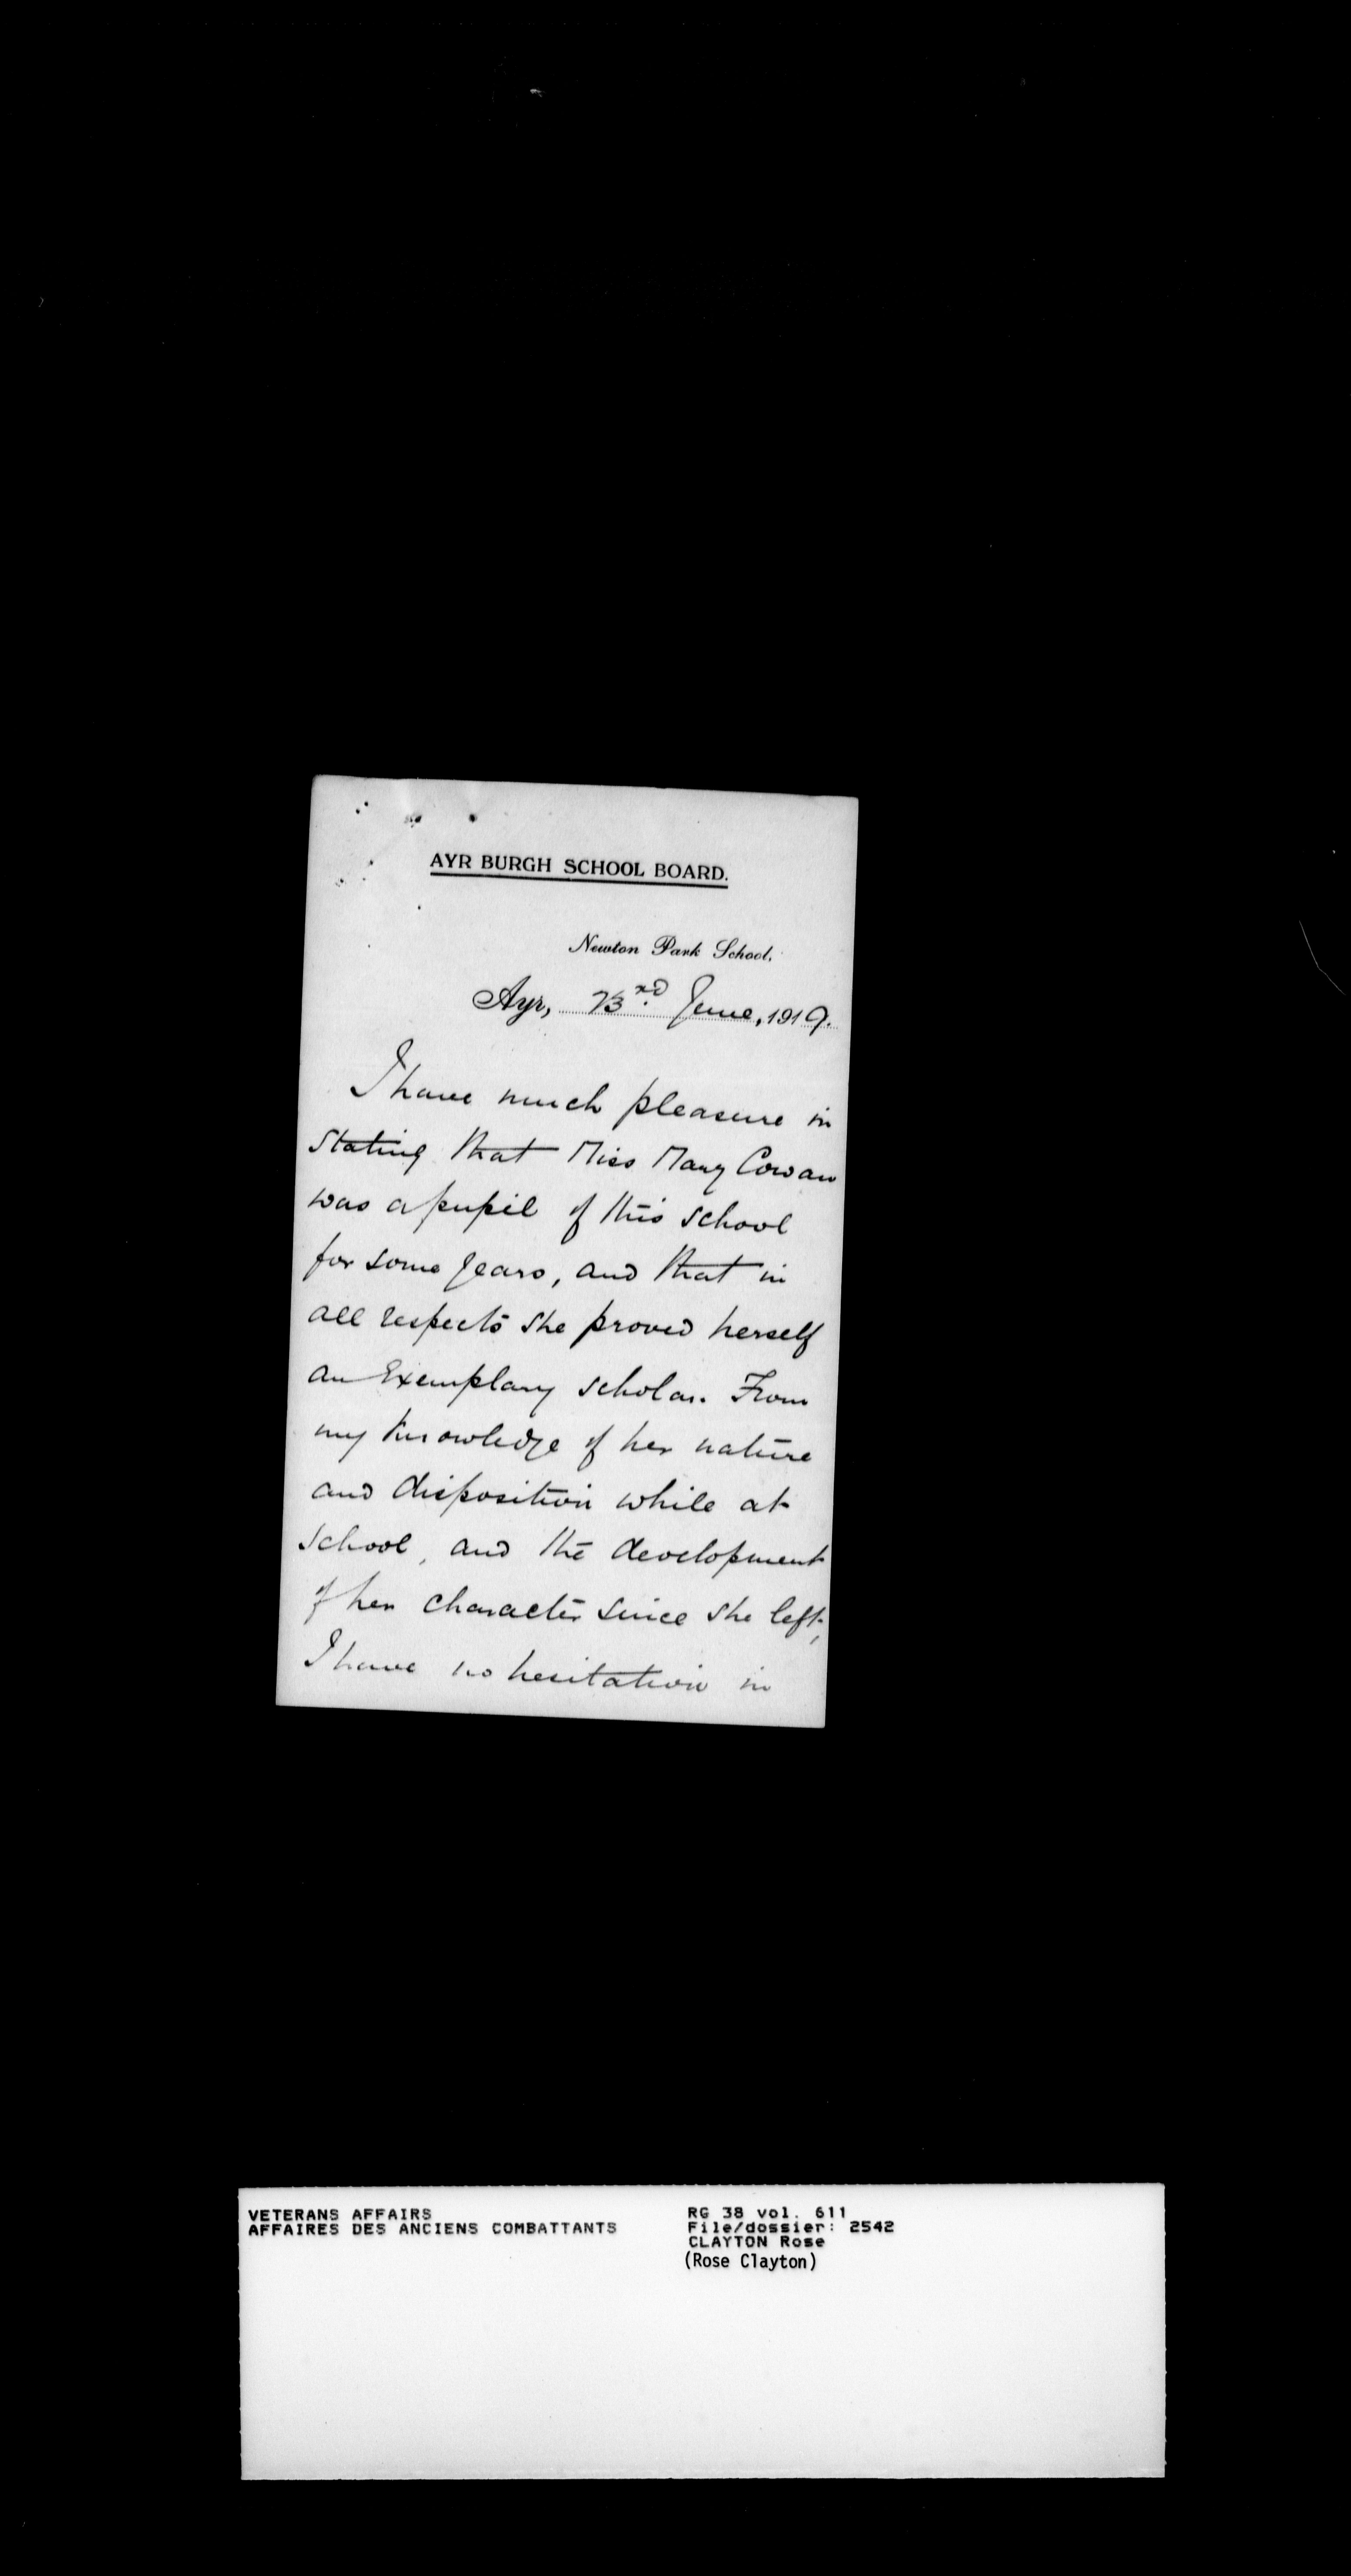 AYR BURGH SCHOOL BOARD.
Newton Park School,
Ayr, 23rd June, 1919.
I have much pleasure in
stating that Miss Mary Cowan
was a pupil of this school
for some years, and that in
all respects she proved herself
an Exemplary scholar. From
my knowledge of her nature
and disposition while at
school, and the development
of her character since she left,
I have no hesitation in
VETERANS AFFAIRS
AFFAIRES DES ANCIENS COMBATTANTS
RG 38 vol. 611
File/dossier: 2542
CLAYTON Rose
(Rose Clayton)